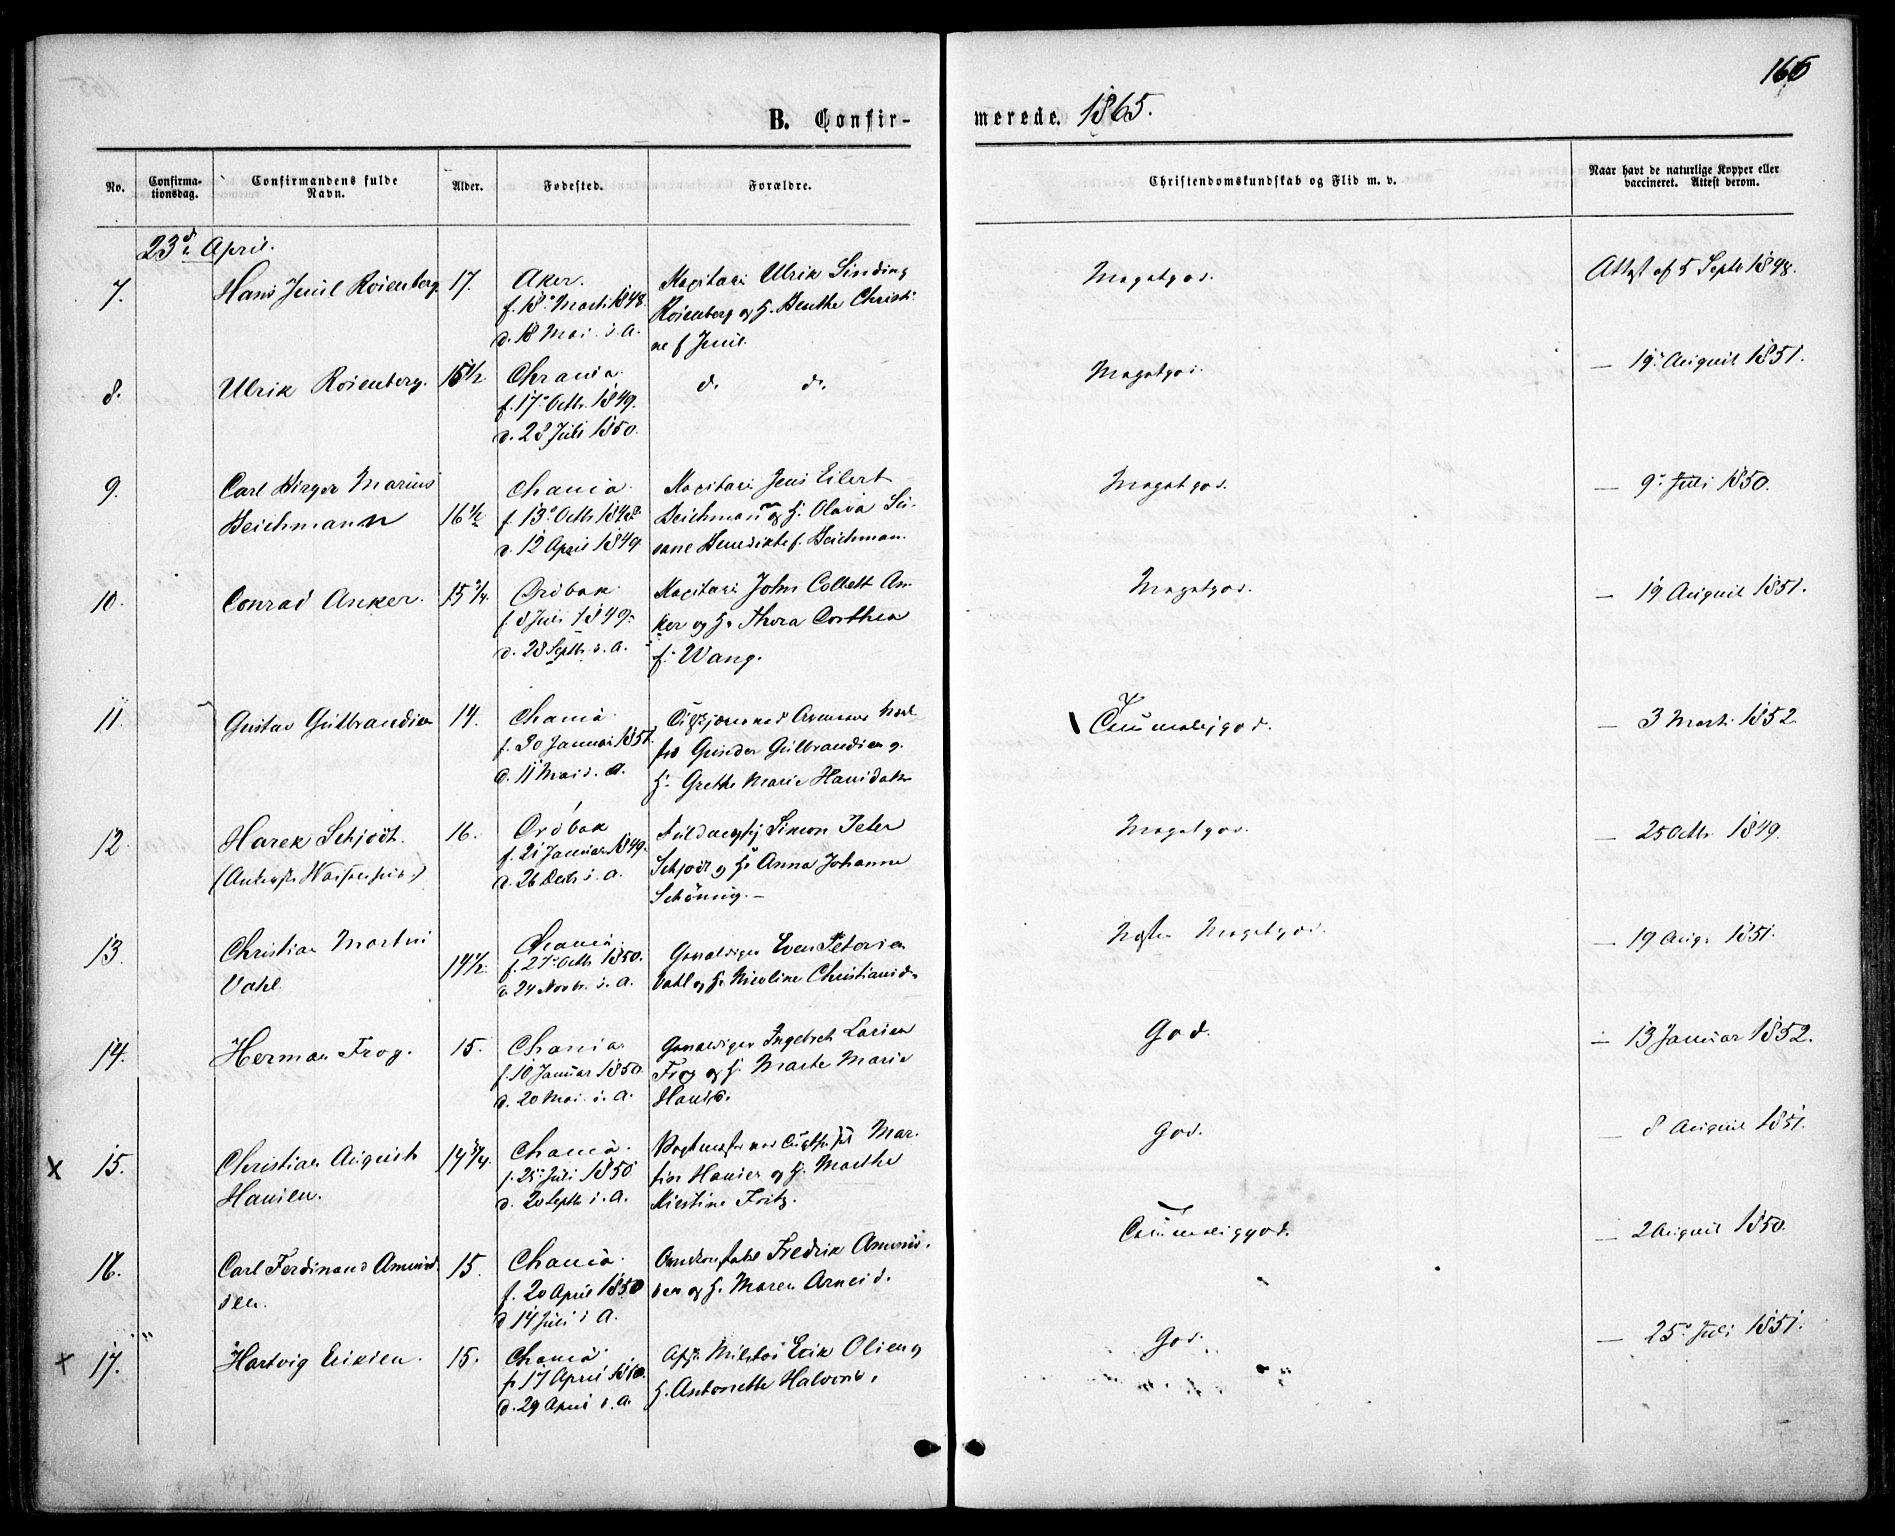 165
B. Confir-
merede. 1865.
No.
Confirma-
tionsdag.
Confirmandens fulde
Navn.
Alder.
Fødested.
Forældre.
Christendomskundskab og Flid m. v.
Naar havt de naturlige Kopper eller
vaccineret. Attest derom.
23d April.
7.
Hans Juul Rosenberg
17.
Aker.
f. 18 Marts 1848.
d. 18 Mai s. A.
Kapitain Ulrik Sinding
Rosenberg og H. Benthe Christi-
ne f Juul.
Megetgod.
Attest af 5 Septb 1848.
8.
Ulrik Rosenberg.
15½
Chrania.
f. 17 Octb. 1849.
d. 28 Juli 1850.
do do
Megetgod.
— 19 August 1851.
9.
Carl Birger Marius
Beichmann
16½
Chania.
f. 13 Octb 1848
d. 12 April 1849
Kapitain Jens Eilert
Beichmann og H. Olava Su-
sane Benedikte f. Beichman.
Megetgod.
— 9 Juli 1850.
10.
Conrad Anker.
15¾.
Drøbak.
f 8 Juli 1849.
d. 28 Septb. s. A.
Kapitain John Collett An-
ker og H. Thora Dorthea
f. Wang.
Megetgod.
— 19 August 1851.
11.
Gustav Gulbrandsen
14.
Chania.
f. 30 Januar 1851.
d. 11 Mai s. A.
Gunder Gulbrandsen og
H. Grethe Marie Hansdatr
Temmeliggod.
— 3 Marts 1852
12.
Harek Schjødt.
16.
Drøbak
f. 21 Januar 1849.
d. 26 Decb s. A.
Simon Peter
Schjødt og H. Anna Johanne
Schöning. —
Megetgod.
— 25 Octb 1849.
13.
Christian Martin
Vahl
14½.
Chania.
f. 27 Octb 1850.
d. 24 Novbr. s. A.
Gevaldiger Even Petersen
Vahl og H. Nicoline Christiansd.
Næsten Megetgod.
— 19 Aug. 1851.
14.
Herman Frog.
15.
Chania
f. 10 Januar 1850.
d. 20 Mai s. A.
Gevaldiger Ingebret Larsen
Frog og H. Marte Marie
Hansd.
God.
— 13 Januar 1852.
X 15.
Christian August
Hansen.
14¾.
Chania.
f. 25 Juli 1850
d. 20 Septb s. A.
Mar-
tin Hansen og H. Marthe
Kirstine Fritz.
God.
— 8 August 1851.
16.
Carl Ferdinand Amund-
sen.
15.
Chania.
f. 20 April 1850
d 14 Juli s A.
Fredrik Amund-
sen og H. Maren Arnesd.
Temmeliggod.
— 2 August 1850.
X 17.
Hartvig Eriksen.
15.
Chania.
f. 17 April 1850.
d. 29 April s. A.
Erik Olsen og
H. Antonette Halvorsd.
God.
— 25 Juli 1851.